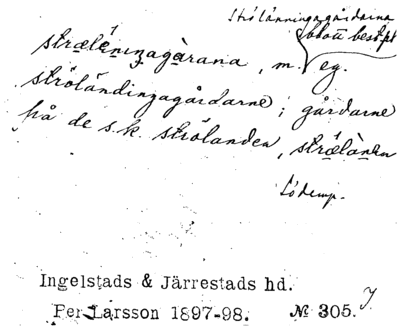 Strölänningagårdarna
blott best. pl
strœlä́ninzagàrana, m. eg.
ströländingagårdarne; gårdarne
på de s.k. strölanden, strœlànen
Söderup.
Ingelstads & Järrestads hd.
Per Larsson 1897-98. № 305.